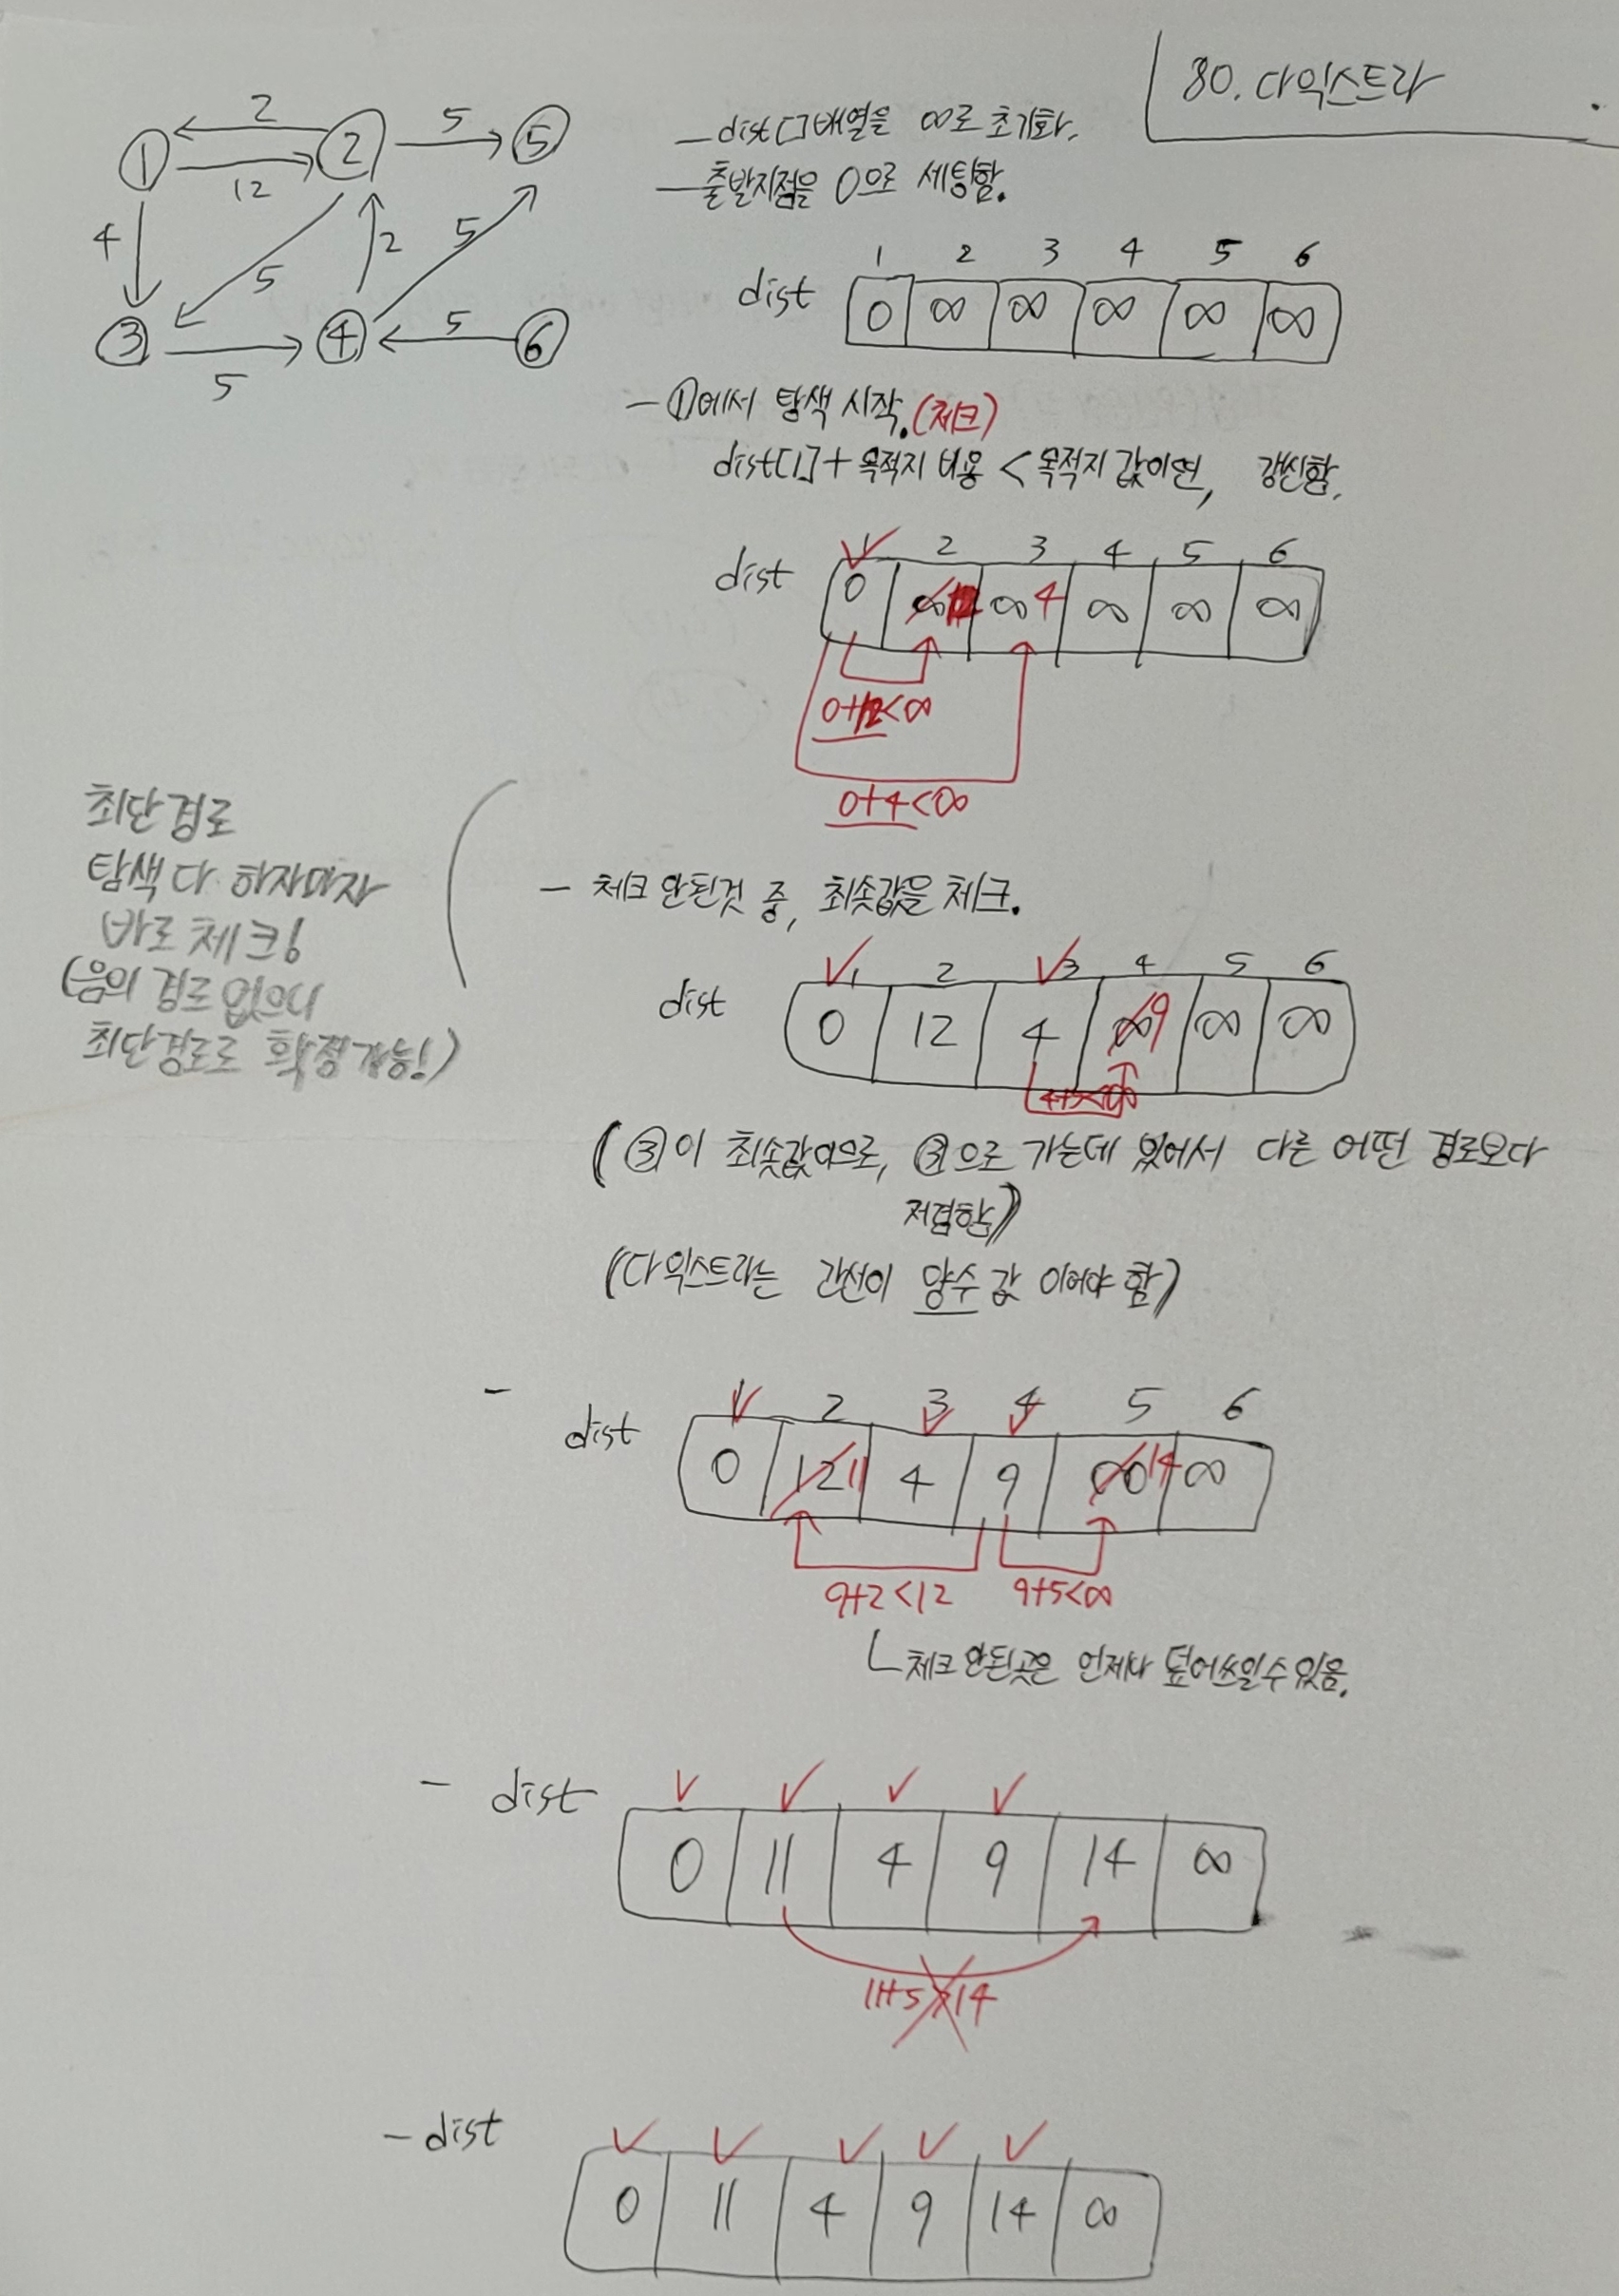 80. 다익스트라
2
① ② 5 ⑤
12
4 5 2 5
③ ④ 5 ⑥
5
- dist[]배열을 ∞로 초기화.
- 출발지점을 0으로 세팅함.
1 2 3 4 5 6
dist 0 ∞ ∞ ∞ ∞ ∞
- ①에서 탐색 시작.(체크)
dist[1]+목적지 비용 < 목적지 값이면, 갱신함.
✓1 2 3 4 5 6
dist 0 ∞12 ∞4 ∞ ∞ ∞
0+12<∞
0+4<∞
최단경로
탐색 다 하자마자
바로 체크!
(음의 경로 없으니
최단경로로 확정가능!)
- 체크 안된것 중, 최솟값을 체크.
✓1 2 ✓3 4 5 6
dist 0 12 4 ∞9 ∞ ∞
4+5<∞
(③이 최솟값이므로, ③으로 가는데 있어서 다른 어떤 경로보다
저렴함)
(다익스트라는 간선이 양수 값 이어야 함)
-
✓1 2 3✓ 4✓ 5 6
dist 0 12 11 4 9 ∞14 ∞
9+2<12 9+5<∞
ㄴ체크 안된곳은 언제나 덮어쓰일수있음.
✓ ✓ ✓ ✓
- dist 0 11 4 9 14 ∞
11+5 14
✓ ✓ ✓ ✓ ✓
- dist 0 11 4 9 14 ∞